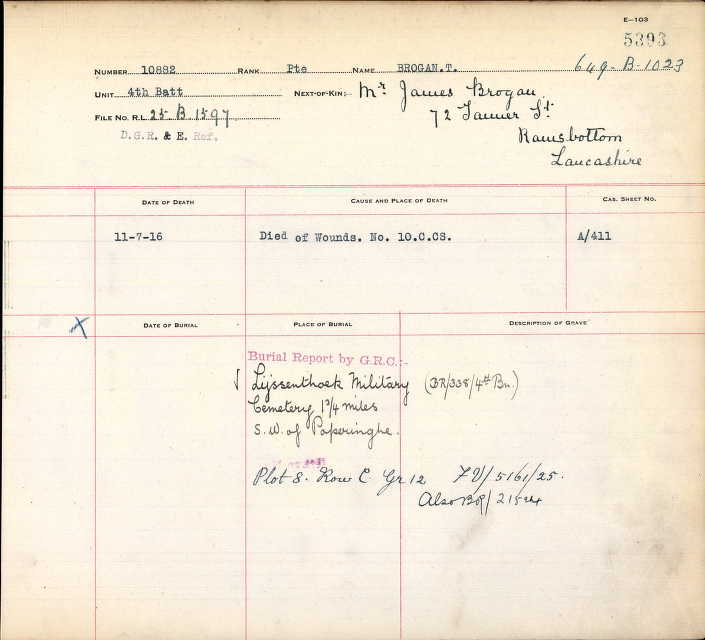 E-103
5393
NUMBER 10882 RANK Pte NAME BROGAN.T. 649-B-1023
UNIT 4th Batt NEXT-OF-KIN:- Mr James Brogan
FILE NO. R.L. 25.B.1597 72 Tanner St
D.G.R. & E. Ref. Ramsbottom
Lancashire
DATE OF DEATH CAUSE AND PLACE OF DEATH CAS. SHEET NO.
11-7-16 Died of Wounds. No. 10.C.CS. A/411
X DATE OF BURIAL PLACE OF BURIAL DESCRIPTION OF GRAVE
Burial Report by G.R.C.:-
Lijssenthoek Military (BR/338/4th Bn.)
Cemetery 1¾ miles
S.W. of Poperinghe.
Plot 8. Row C. Gr 12 FV/5161/25.
Also BR/